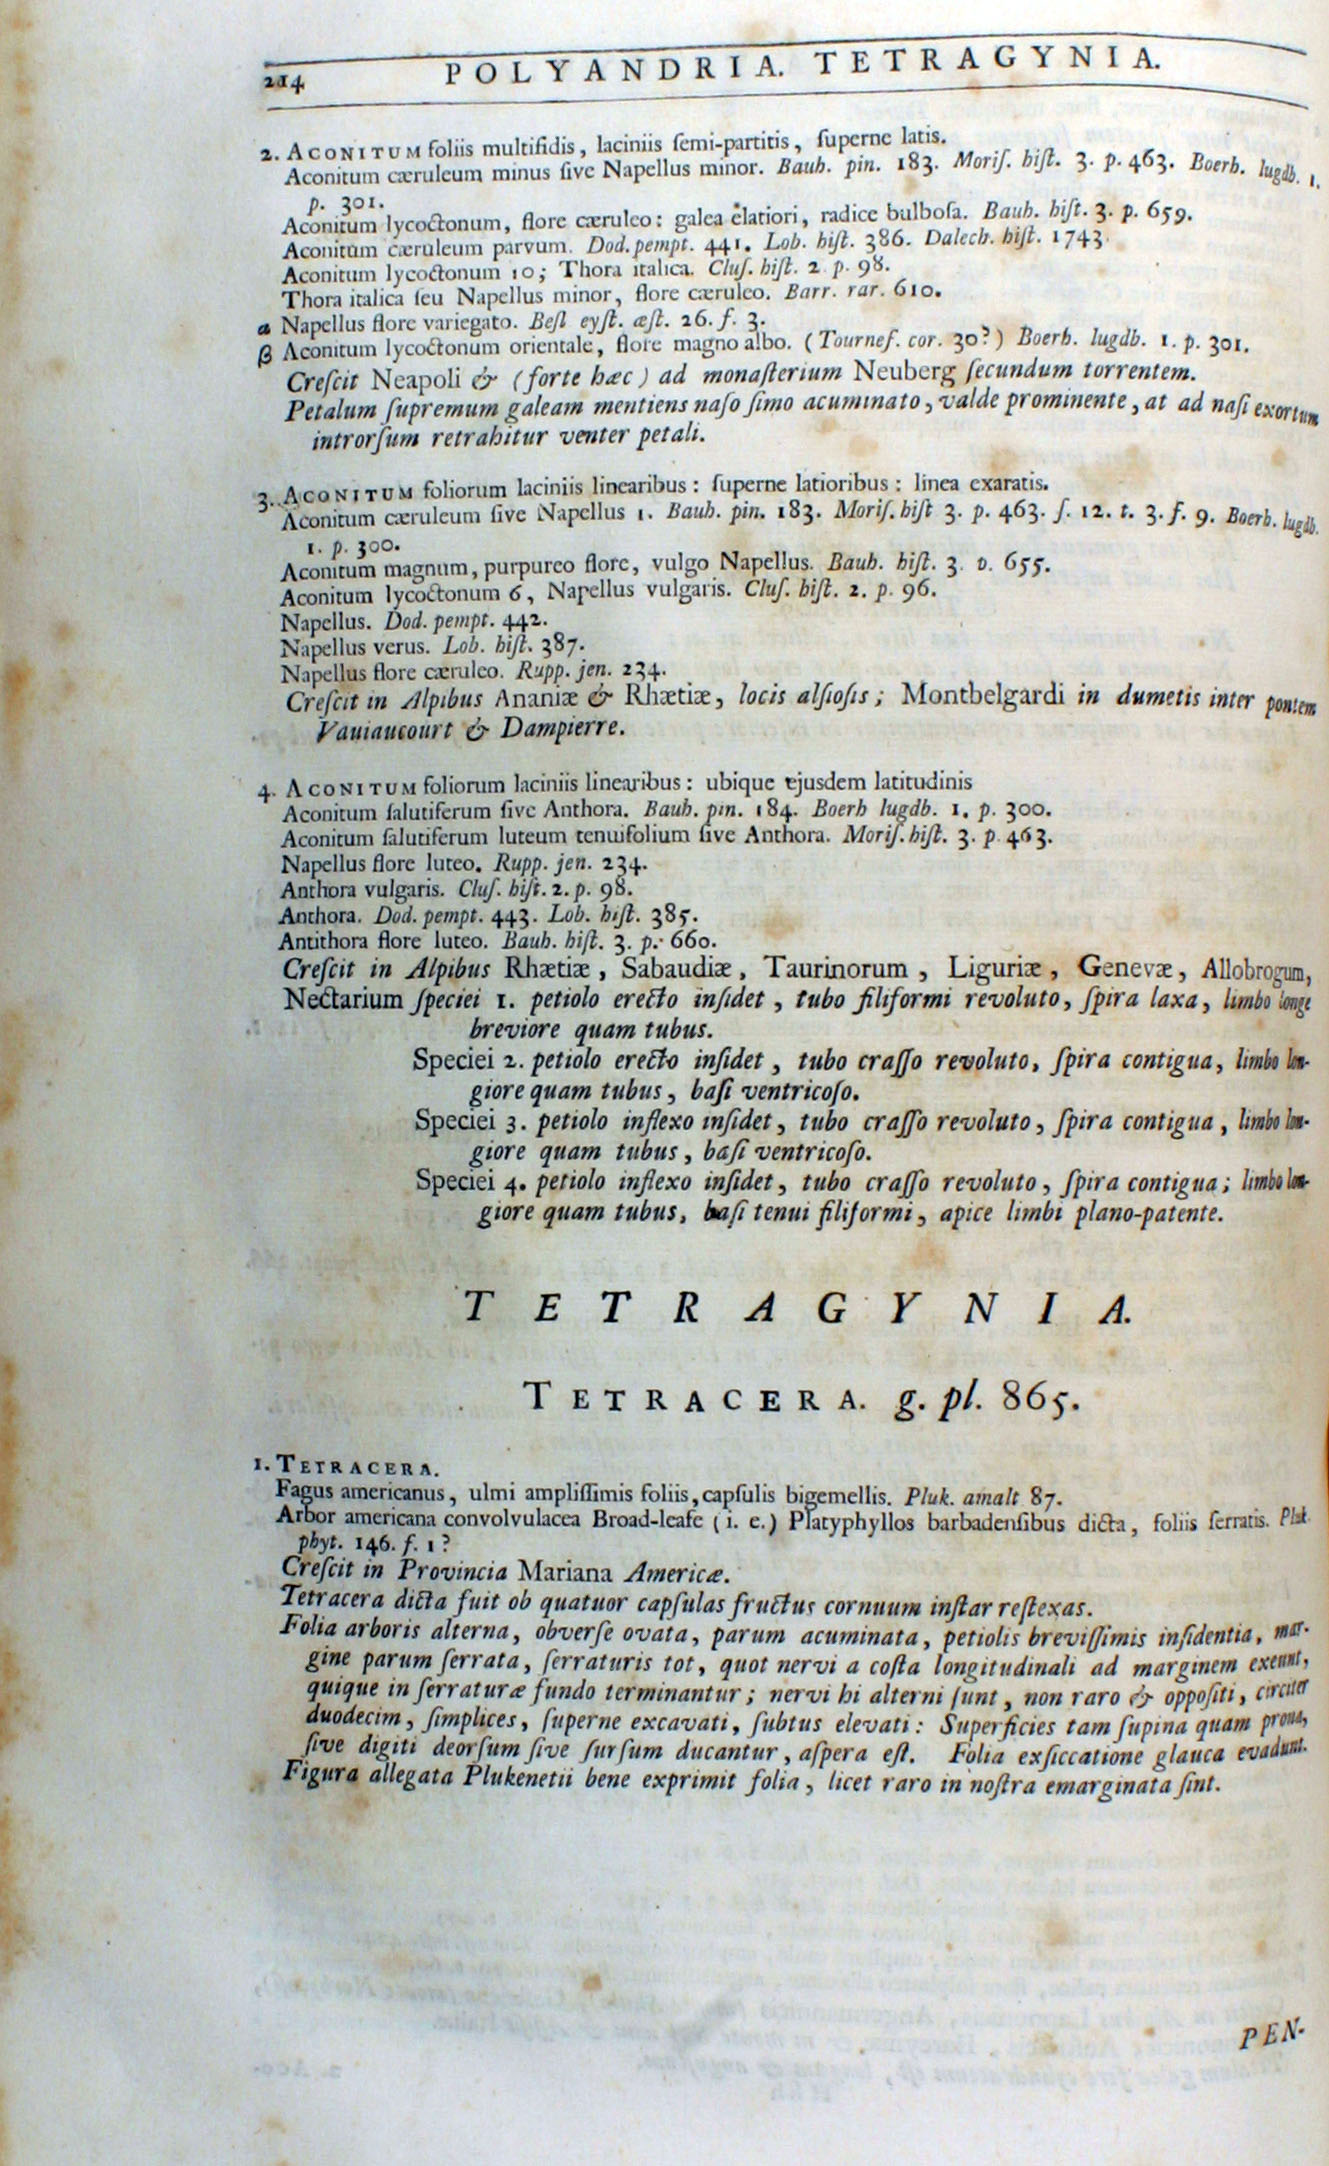 214 POLYANDRIA. TETRAGYNIA.
2. ACONITUM foliis multifidis, laciniis ſemi-partitis, ſuperne latis.
Aconitum cæruleum minus ſive Napellus minor. Bauh. pin. 183. Moriſ. hiſt. 3. p. 463. Boerh. lugdb. 1.
p. 301.
Aconitum lycoctonum, flore cæruleo: galea elatiori, radice bulboſa. Bauh. hiſt. 3. p. 659.
Aconitum cæruleum parvum. Dod. pempt. 441. Lob. hiſt. 386. Dalech. hiſt. 1743.
Aconitum lycoctonum 10; Thora italica. Cluſ. hiſt. 2. p. 98.
Thora italica ſeu Napellus minor, flore cæruleo. Barr. rar. 610.
α Napellus flore variegato. Beſl eyſt. æſt. 26. f. 3.
β Aconitum lycoctonum orientale, flore magno albo. (Tournef. cor. 30?) Boerh. lugdb. 1. p. 301.
Creſcit Neapoli & (forte hæc) ad monaſterium Neuberg ſecundum torrentem.
Petalum ſupremum galeam mentiens naſo ſimo acuminato, valde prominente, at ad naſi exortum
introrſum retrahitur venter petali.
3. ACONITUM foliorum laciniis linearibus: ſuperne latioribus: linea exaratis.
Aconitum cæruleum ſive Napellus 1. Bauh. pin. 183. Moriſ. hiſt 3. p. 463. ſ. 12. t. 3. f. 9. Boerh. lugdb.
1. p. 300.
Aconitum magnum, purpureo flore, vulgo Napellus. Bauh. hiſt. 3. p. 655.
Aconitum lycoctonum 6, Napellus vulgaris. Cluſ. hiſt. 2. p. 96.
Napellus. Dod. pempt. 442.
Napellus verus. Lob. hiſt. 387.
Napellus flore cæruleo. Rupp. jen. 234.
Creſcit in Alpibus Ananiæ & Rhætiæ, locis alſioſis; Montbelgardi in dumetis inter pontem
Vauiaucourt & Dampierre.
4. ACONITUM foliorum laciniis linearibus: ubique ejusdem latitudinis
Aconitum ſalutiferum ſive Anthora. Bauh. pin. 184. Boerh lugdb. 1. p. 300.
Aconitum ſalutiferum luteum tenuifolium ſive Anthora. Moriſ. hiſt. 3. p. 463.
Napellus flore luteo. Rupp. jen. 234.
Anthora vulgaris. Cluſ. hiſt. 2. p. 98.
Anthora. Dod. pempt. 443. Lob. hiſt. 385.
Antithora flore luteo. Bauh. hiſt. 3. p. 660.
Creſcit in Alpibus Rhætiæ, Sabaudiæ, Taurinorum, Liguriæ, Genevæ, Allobrogum,
Nectarium ſpeciei 1. petiolo erecto inſidet, tubo filiformi revoluto, ſpira laxa, limbo longe
breviore quam tubus.
Speciei 2. petiolo erecto inſidet, tubo craſſo revoluto, ſpira contigua, limbo lon-
giore quam tubus, baſi ventricoſo.
Speciei 3. petiolo inflexo inſidet, tubo craſſo revoluto, ſpira contigua, limbo lon-
giore quam tubus, baſi ventricoſo.
Speciei 4. petiolo inflexo inſidet, tubo craſſo revoluto, ſpira contigua; limbo lon-
giore quam tubus, baſi tenui filiformi, apice limbi plano-patente.
TETRAGYNIA.
TETRACERA. g. pl. 865.
1. TETRACERA.
Fagus americanus, ulmi ampliſſimis foliis, capſulis bigemellis. Pluk. amalt 87.
Arbor americana convolvulacea Broad-leafe (i. e.) Platyphyllos barbadenſibus dicta, foliis ſerratis. Pluk.
phyt. 146. f. 1?
Creſcit in Provincia Mariana Americæ.
Tetracera dicta fuit ob quatuor capſulas fructus cornuum inſtar reflexas.
Folia arboris alterna, obverſe ovata, parum acuminata, petiolis breviſſimis inſidentia, mar-
gine parum ſerrata, ſerraturis tot, quot nervi a coſta longitudinali ad marginem exeunt,
quique in ſerraturæ fundo terminantur; nervi hi alterni ſunt, non raro & oppoſiti, circiter
duodecim, ſimplices, ſuperne excavati, ſubtus elevati: Superficies tam ſupina quam prona,
ſive digiti deorſum ſive ſurſum ducantur, aſpera eſt. Folia exſiccatione glauca evadunt.
Figura allegata Plukenetii bene exprimit folia, licet raro in noſtra emarginata ſint.
PEN-